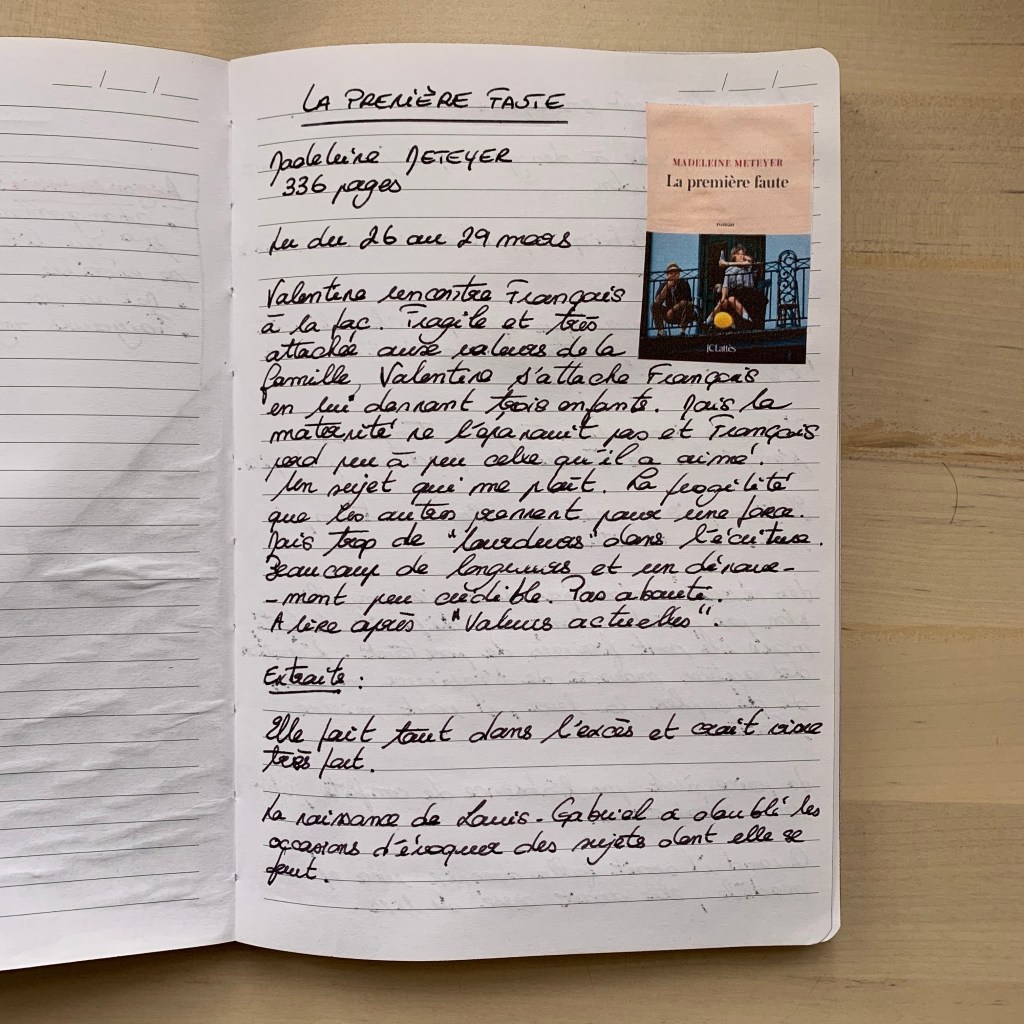 LA PREMIÈRE FAUTE
Madeleine METEYER
336 pages
Lu du 26 au 29 mars
MADELEINE METEYER
La première faute
roman
JC Lattès
Valentine rencontre François
à la fac. Fragile et très
attachée aux valeurs de la
famille, Valentine s'attache François
en lui donnant trois enfants. Mais la
maternité ne l'épanouit pas et François
perd peu à peu celle qu'il a aimé.
Un sujet qui me plaît. La fragilité
que les autres prennent pour une force.
Mais trop de "lourdeurs" dans l'écriture.
Beaucoup de longueurs et un dénoue-
-ment peu crédible. Pas abouti.
A lire après "Valeurs actuelles".
Extraits :
Elle fait tout dans l'excès et croit vivre
très fort.
La naissance de Louis-Gabriel a doublé les
occasions d'évoquer des sujets dont elle se
fout.